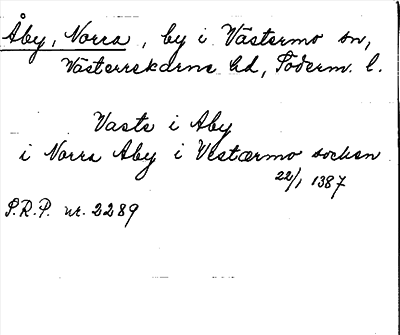 Åby, Norra, by i Västermo sn,
Västerrekarne hd, Söderm. l.
Vaste i Aby
i Norra Aby i Vestærmo socken
22/1 1387
S.R.P. nr. 2289